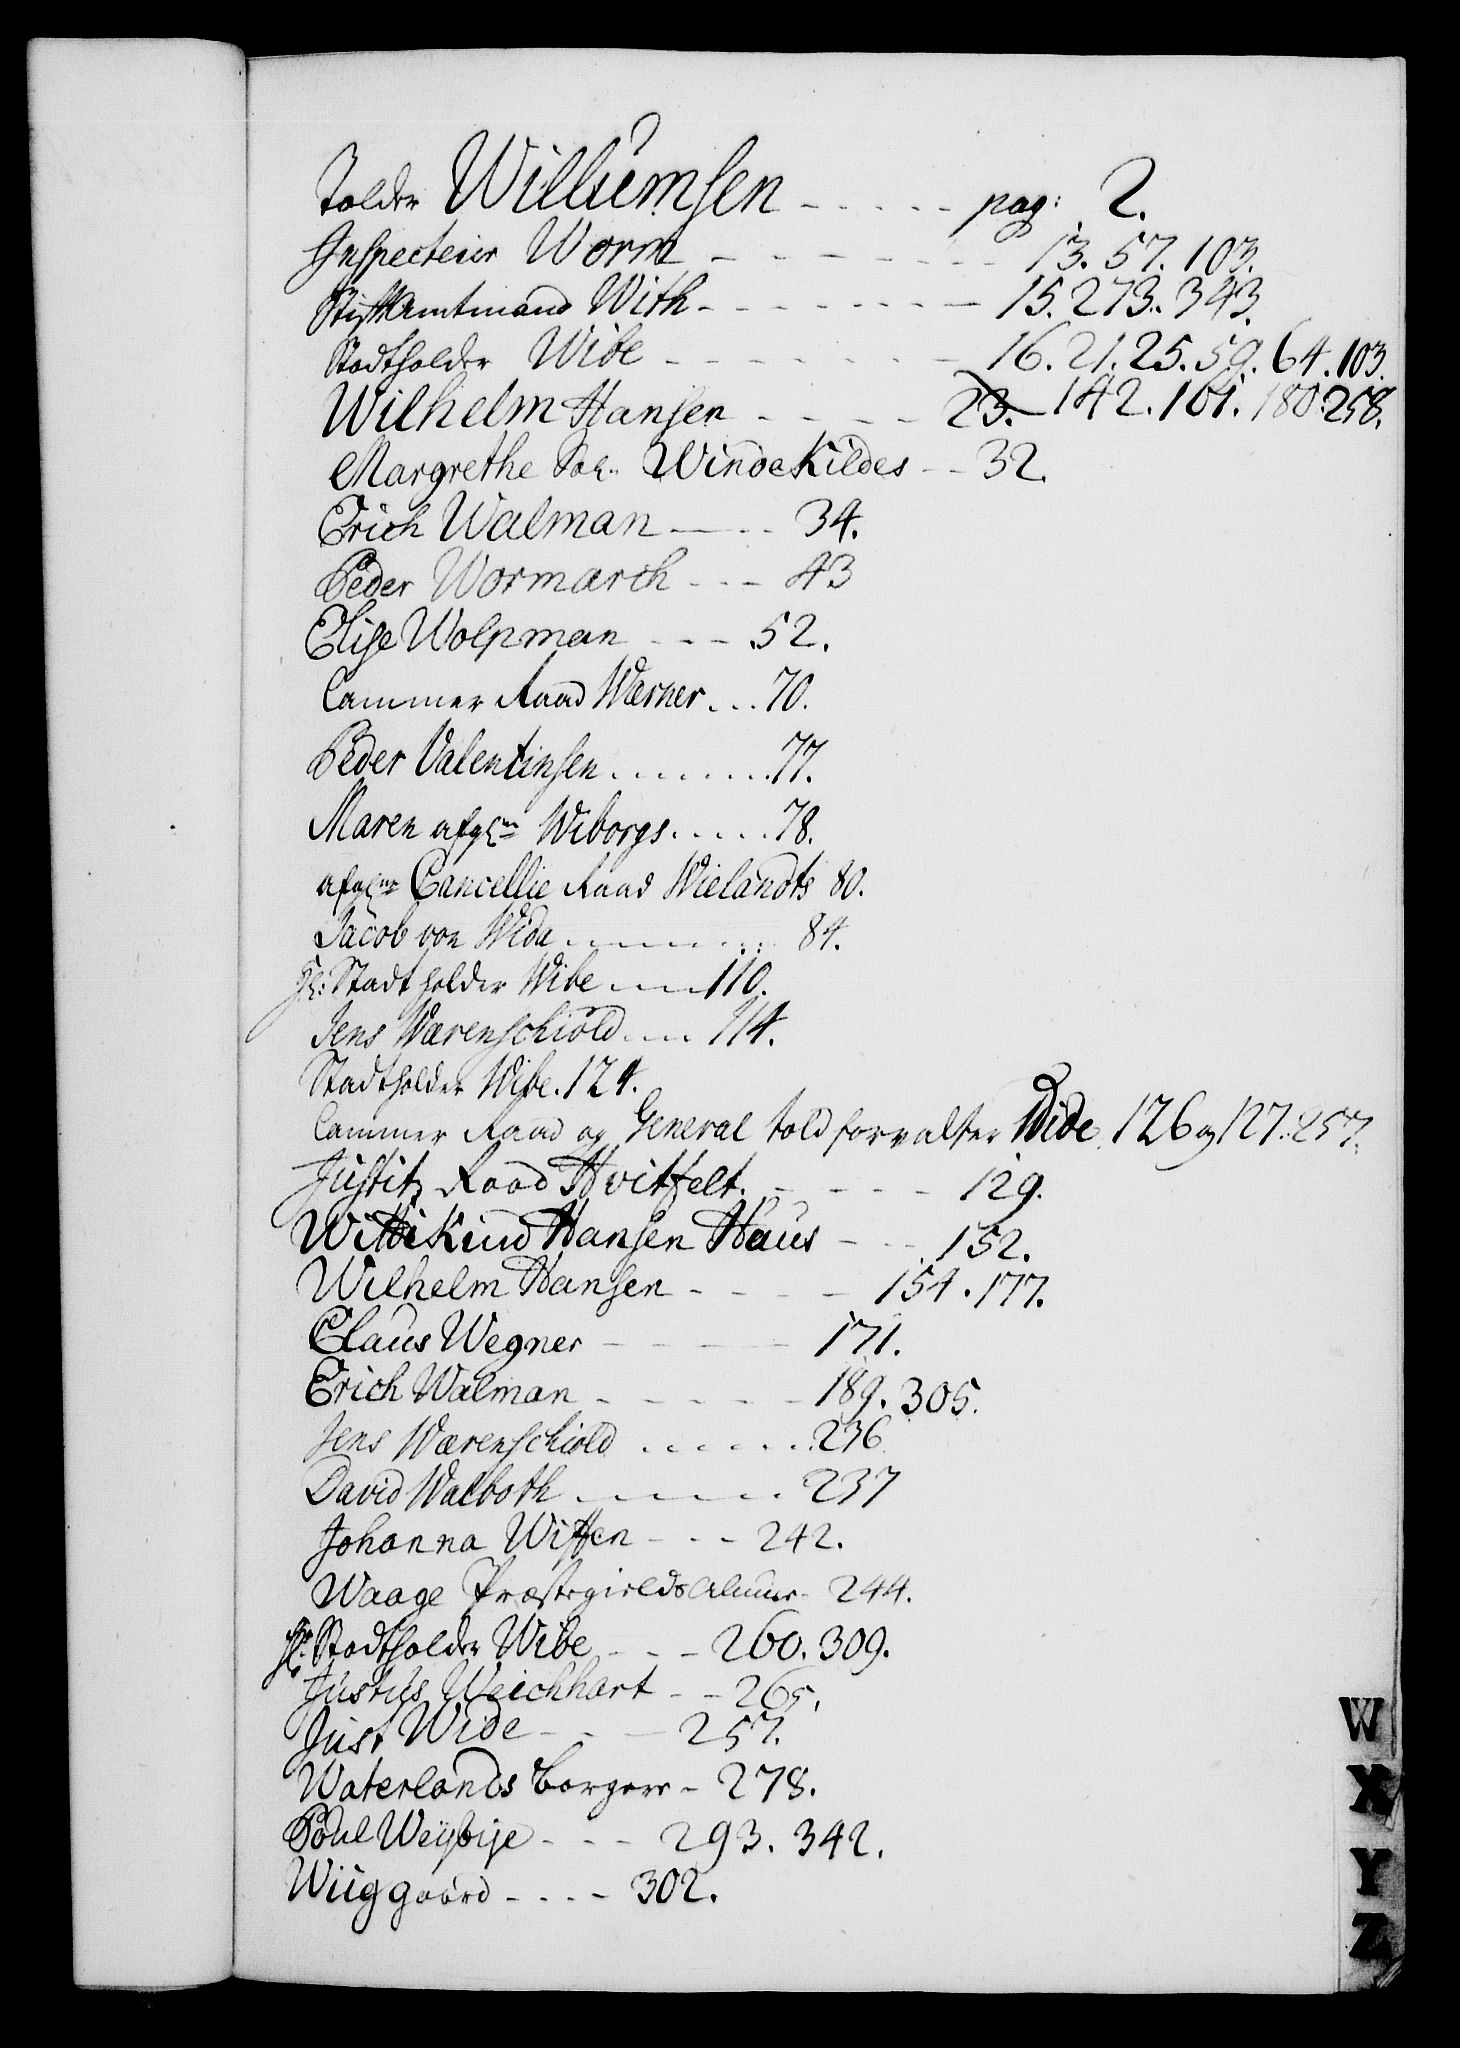 Tolder Willumsen - - - - - pag: 2.
Inspecteur Worm - - - - - - - - 13. 57. 103.
Stiftamtmand With - - - - - - - - 15. 273. 343.
Stadtholder Wibe - - - - - - - 16. 21. 25. 59. 64. 103.
Wilhelm Hansen - - - - - 23. 142. 161. 180. 258.
Margrethe Sal. WindeKildes - - 32.
Erich Walman - - - 34.
Peder Wormarch - - - 43
Elise Wolpman - - - 52.
Cammer Raad Werner . . . 70.
Peder Valentinsen . . . . . . . . 77.
Maren afgl Wiborgs . . . . . 78.
afgl Cancellie Raad Wielandts 80.
Jacob von Wida . . . . . . . . 84.
Hl: Stadtholder Wibe . . . . 110.
Jens Wærenschiold . . . . 114.
Stadtholder Wibe. 124.
Cammer Raad og General toldforvalter Wide 126 og 127. 257.
Justitz Raad Hvitfelt. - - - - - 129.
WittiKind Hansen Haus - - - 152.
Wilhelm Hansen - - - - - 154. 177.
Claus Wegner - - - - - - 171.
Erich Walman - - - - - - 189. 305.
Jens Wærenschiold . . . . . . . 236
David Walboth . . . . . . . 237
Johanna Witten - - - 242.
Waage Præstegields Almue - 244.
Hl: Stadtholder Wibe - - - 260. 309.
Justus Weichhart - - 265.
Just Wide - - - - 257.
Waterlands borgere - 278.
Poul Weybye - - - 293. 342.
Wiiggaard - - - - 302.
W
X
Y
Z